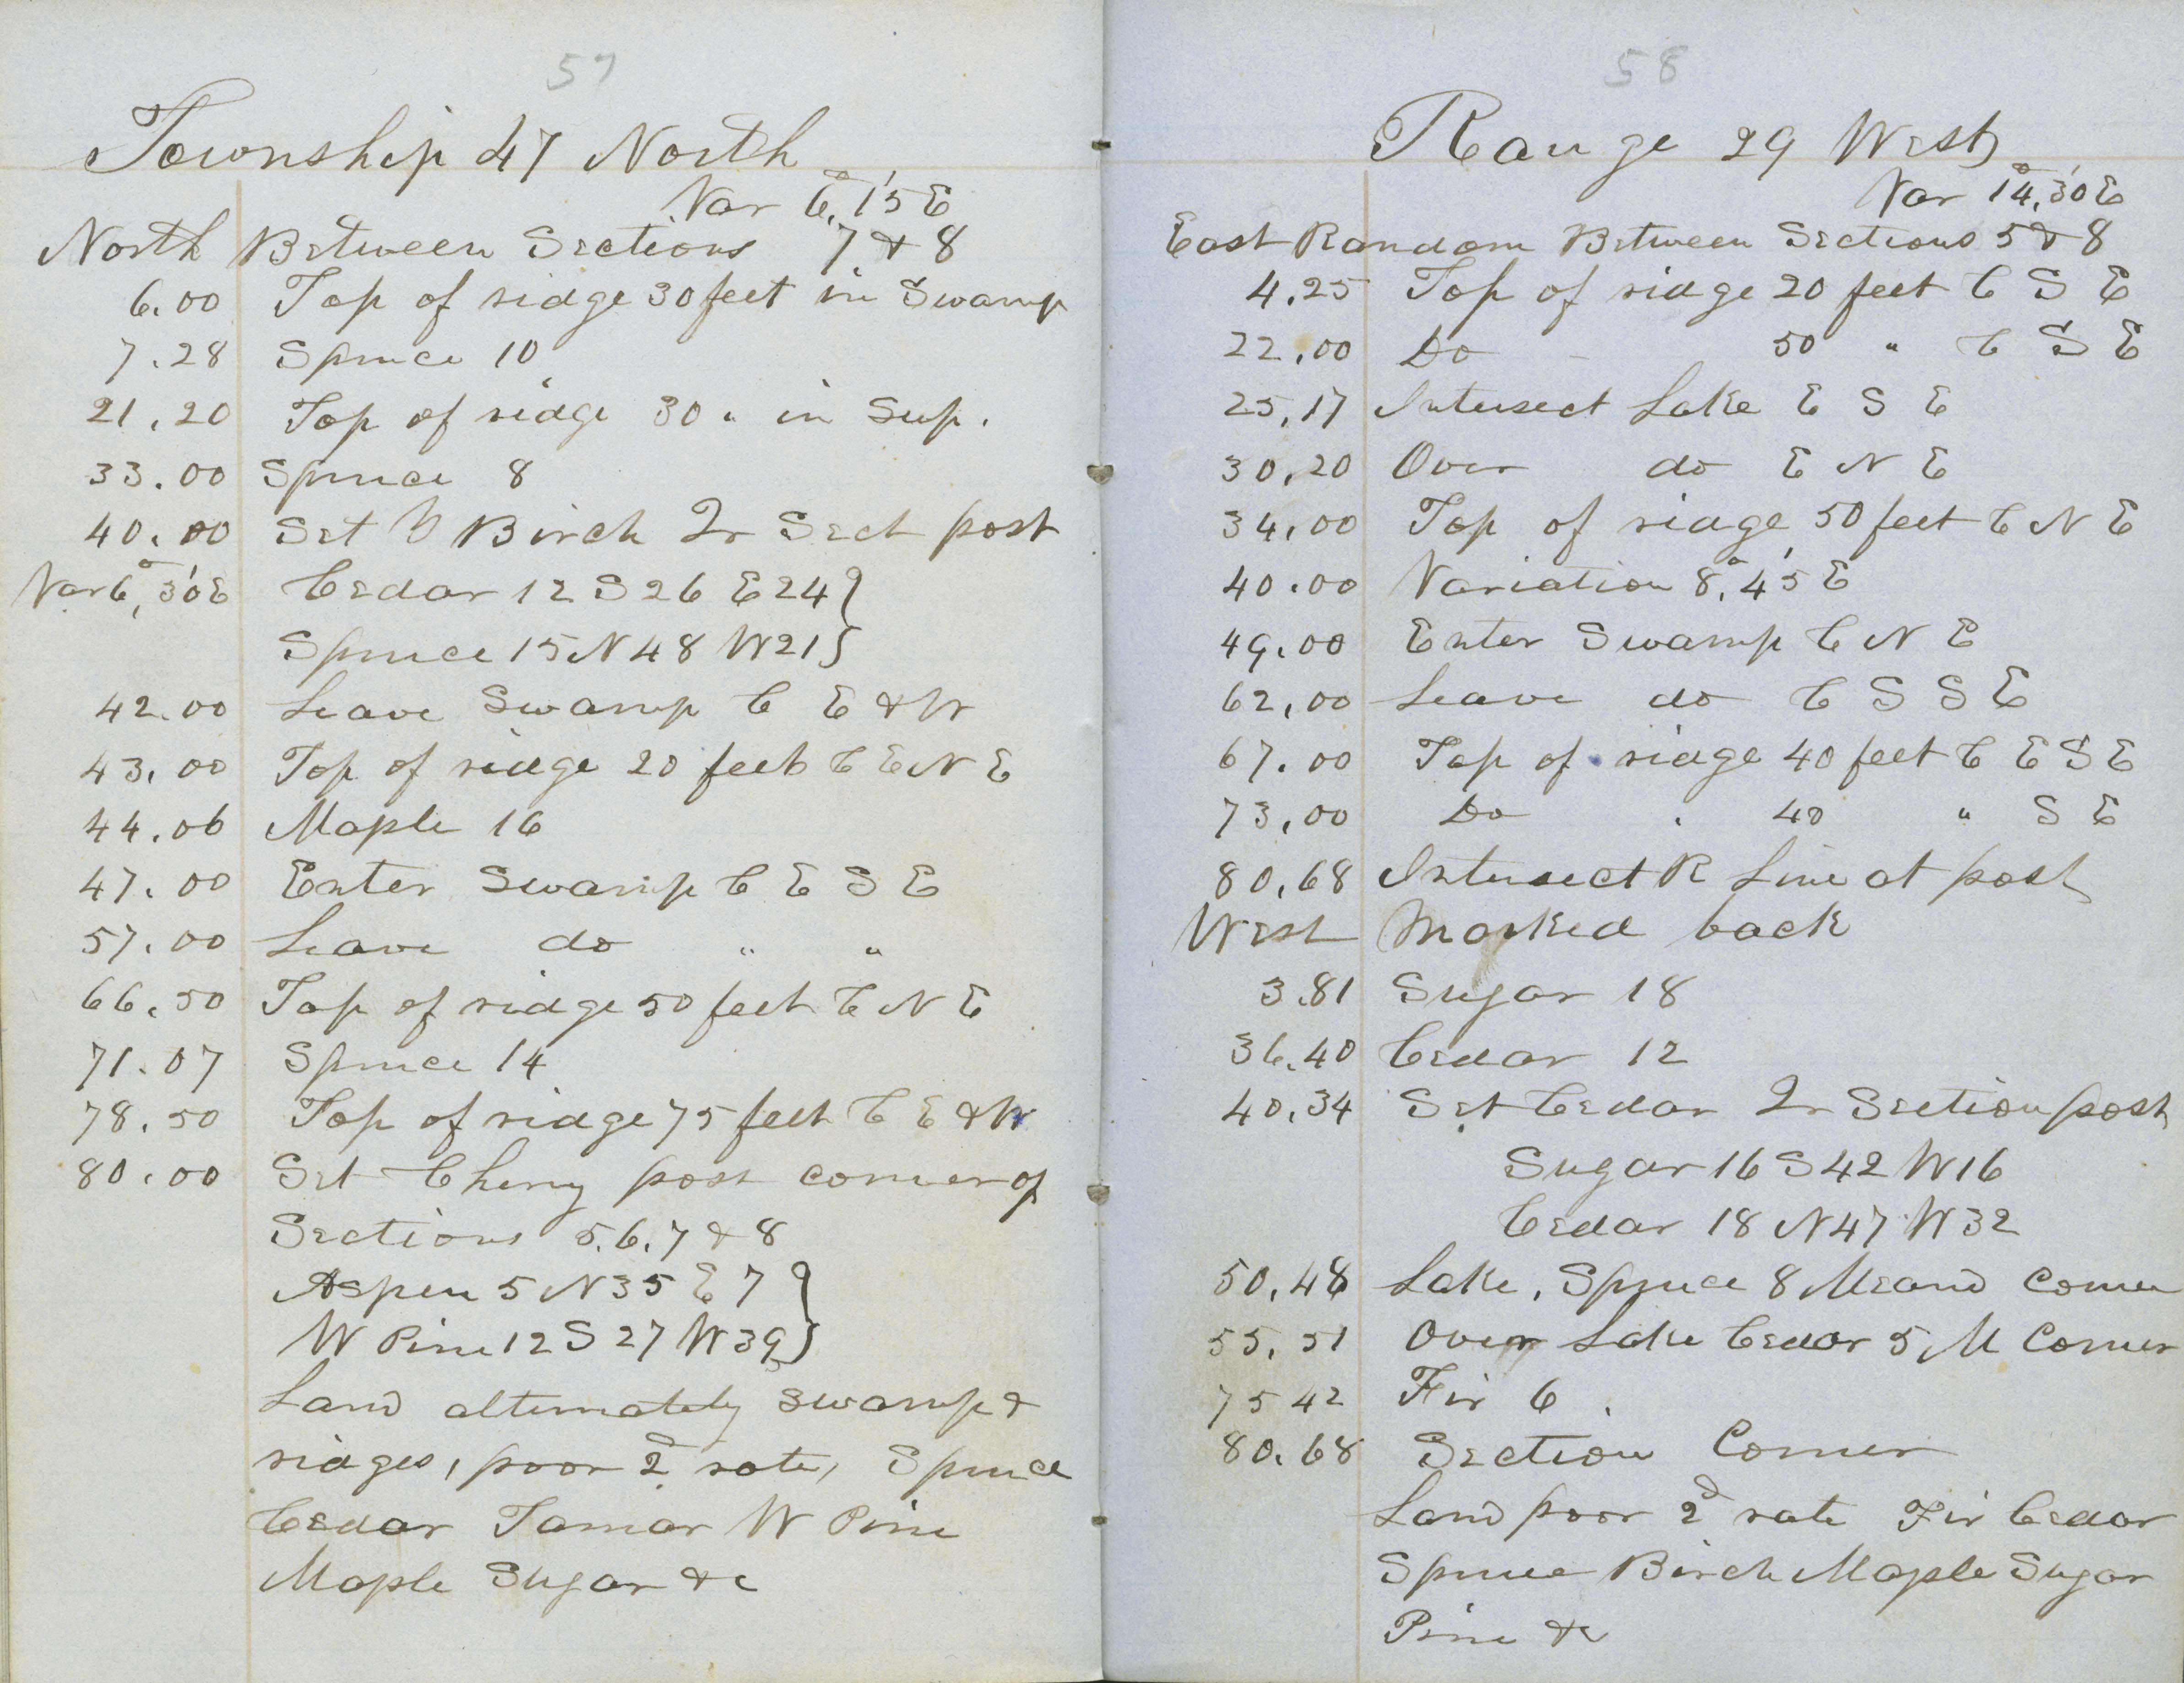 57
Township 47 North
Var 6°,15' E
North Between Sections 7 & 8
6.00 Top of ridge 30 feet in Swamp
7.28 Spruce 10
21.20 Top of ridge 30 " in Swp.
33.00 Spruce 8
40.00 Set Birch Qr Sect post
Var 6°,30' E Cedar 12 S 26 E 24 }
Spruce 15 N 48 W 21 }
42.00 Leave Swamp C E & W
43.00 Top of ridge 20 feet C E N E
44.06 Maple 16
47.00 Enter Swamp C E S E
57.00 Leave do " "
66.50 Top of ridge 50 feet C N E
71.07 Spruce 14
78.50 Top of ridge 75 feet C E & W
80.00 Set Cherry post corner of
Sections 5.6.7 & 8
Aspen 5 N 35 E 7 }
W Pine 12 S 27 W 39 }
Land alternately Swamp &
ridges, poor 2d rate, Spruce
Cedar Tamar W Pine
Maple Sugar &c
58
Range 29 West
Var 14°,30' E
East Random Between Sections 5 & 8
4.25 Top of ridge 20 feet C S E
22.00 Do 50 " C S E
25.17 Intersect Lake E S E
30.20 Over do E N E
34.00 Top of ridge 50 feet C N E
40.00 Variation 8°,45' E
49.00 Enter Swamp C N E
62.00 Leave do C S S E
67.00 Top of ridge 40 feet C E S E
73.00 Do 40 " S E
80.68 Intersect R Line at post
West Marked back
3.81 Sugar 18
36.40 Cedar 12
40.34 Set Cedar Qr Section post
Sugar 16 S 42 W 16
Cedar 18 N 47 W 32
50.48 Lake, Spruce 8 Meand Corner
55.51 Over Lake Cedar 5 M Corner
75 42 Fir 6
80.68 Section Corner
Land poor 2d rate Fir Cedar
Spruce Birch Maple Sugar
Pine &c